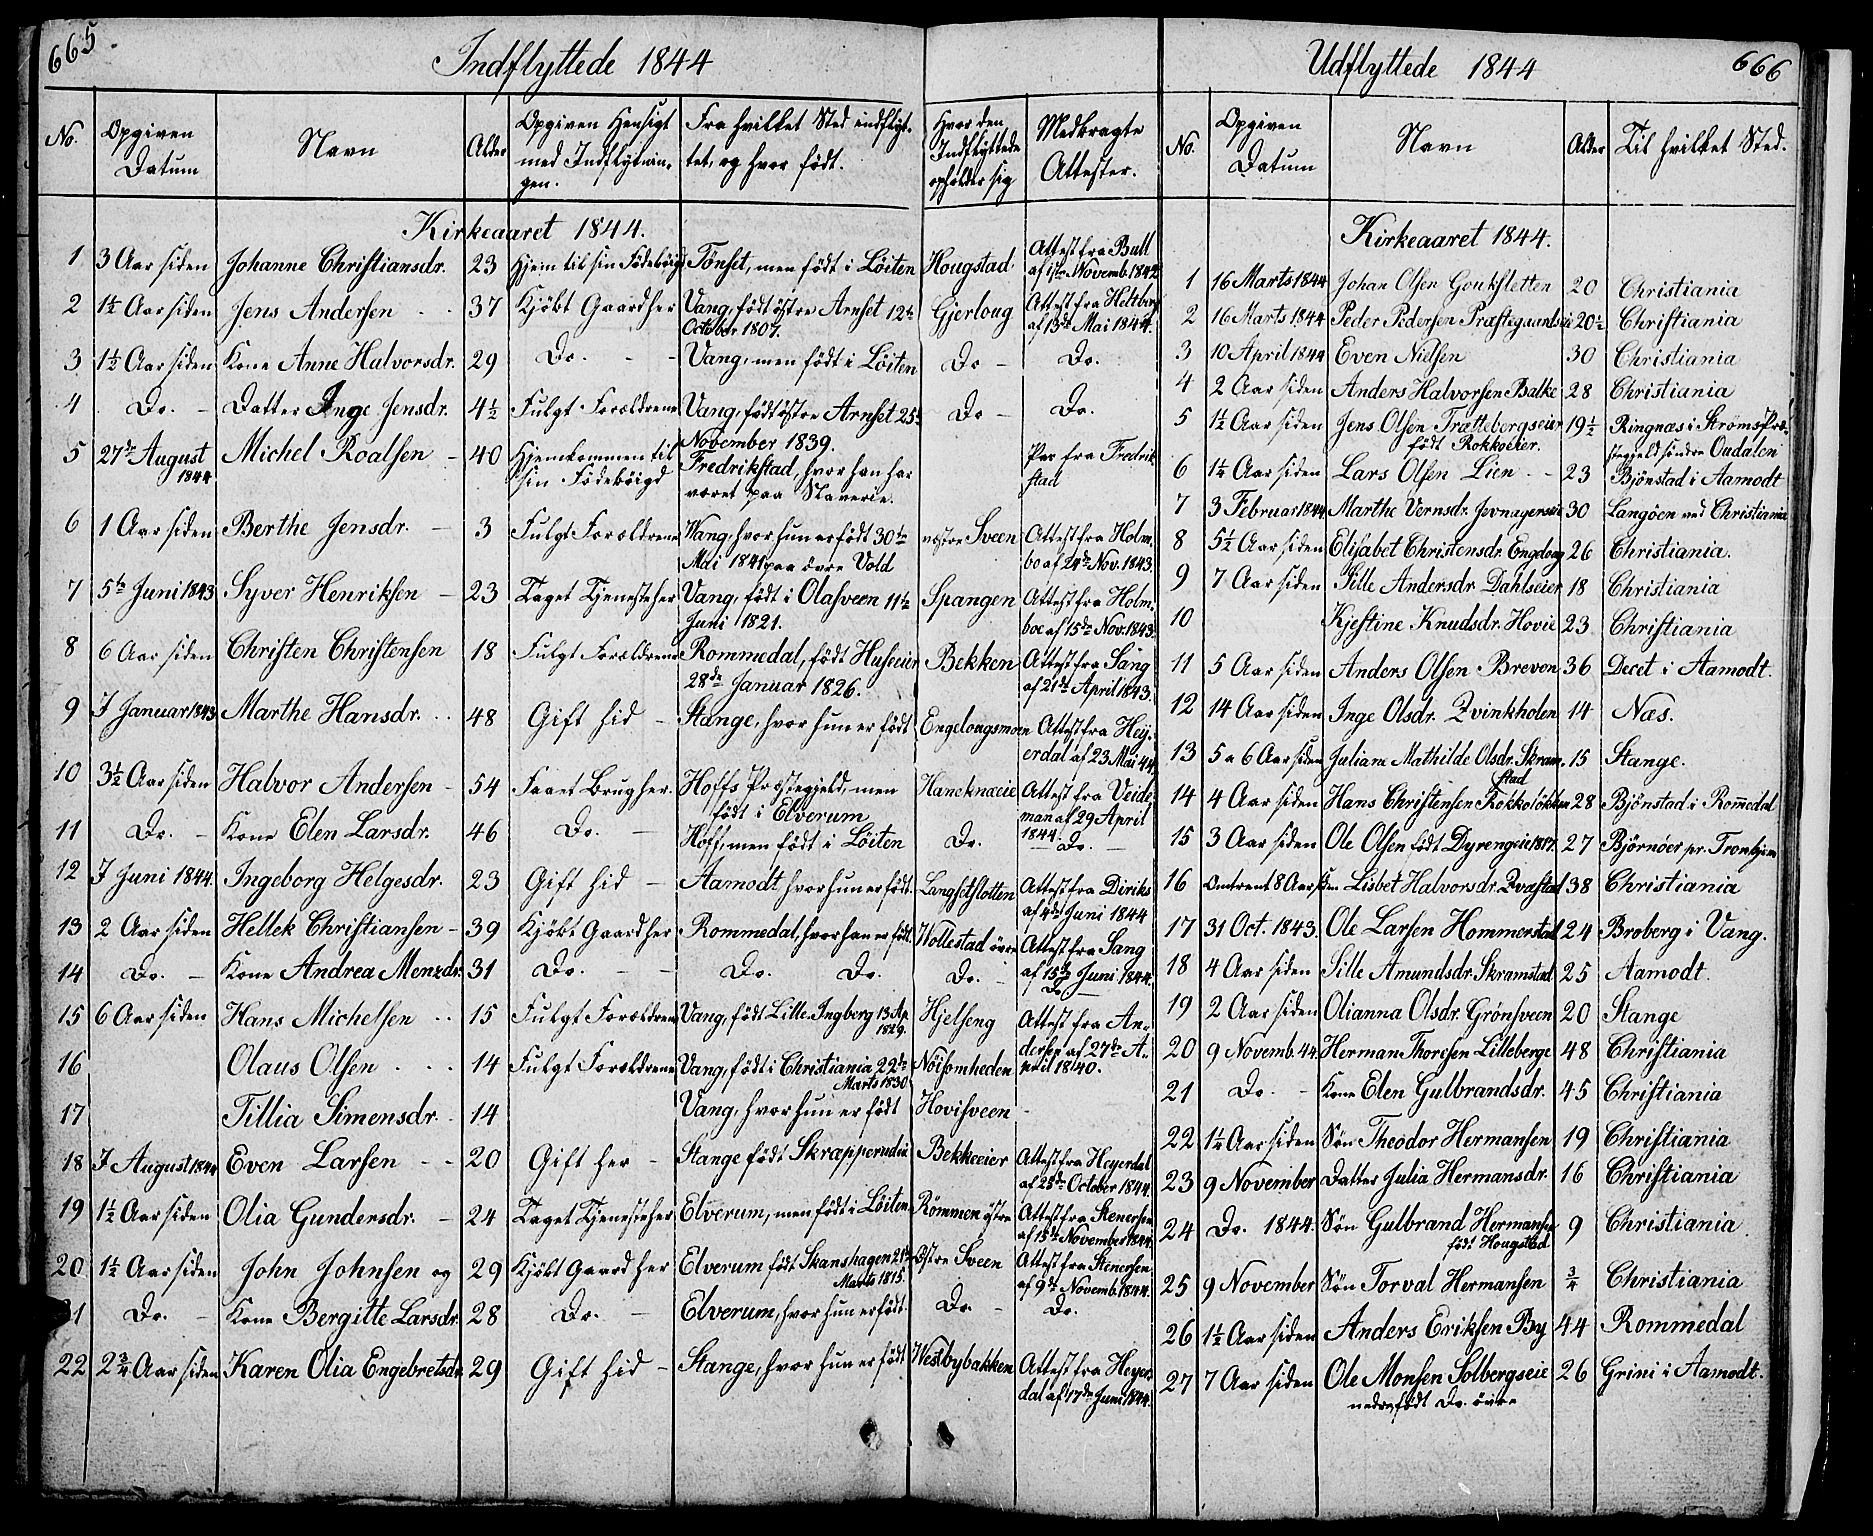 665.
Indflyttede 1844
No. | Opgiven Datum | Navn | Alder | Opgiven Hensigt med Indflytningen. | Fra hvilket Sted indflyttet, og hvor født. | Hvor den Indflyttede opholder sig | Medbragte Attester.
Kirkeaaret 1844.
1 | 3 Aar siden | Johanne Christiansdr. | 23 | Hjem til sin Födeböigd | Tönset, men födt i Löiten | Hougstad | Attest fra Bull af 1ste Novemb. 1842
2 | 1½ Aar siden | Jens Andersen | 37 | Kjöbt Gaard her | Vang, födt östre Arnset 12te October 1807. | Gjerloug | Attest fra Heltberg af 13de Mai 1844.
3 | 1½ Aar siden | Kone Anne Halvorsdr. | 29 | Do. | Vang, men födt i Löiten | Do | Do.
4 | Do. | Datter Inge Jensdr. | 4½ | Fulgt Forældrene | Vang, födt östre Arnset 25de November 1839. | Do | Do.
5 | 27de August 1844 | Michel Roalsen | 40 | Hjemkommen til sin Födeböigd | Fredrikstad, hvor han har været paa Slaverie. | | Pas fra Fredrikstad
6 | 1 Aar siden | Berthe Jensdr. | 3 | Fulgt Forældrene | Vang, hvor hun er födt 30te Mai 1841 paa övre Vold | vestre Sveen | Attest fra Holmbo af 24de Nov. 1843.
7 | 5te Juni 1843 | Syver Henriksen | 23 | Taget Tjeneste her | Vang, födt i Olasveen 11te Juni 1821. | Spangen | Attest fra Holmboe af 15de Nov. 1843.
8 | 6 Aar siden | Christen Christensen | 18 | Fulgt Forældrene | Rommedal, födt Huseeier 28de Januar 1826. | Bekken | Attest fra Sang af 21de April 1843.
9 | 7 Januar 1843 | Marthe Hansdr. | 48 | Gift hid | Stange, hvor hun er födt | Engelougsmoen | Attest fra Heyerdal af 23 Mai 44.
10 | 3½ Aar siden | Halvor Andersen | 54 | Faaet Brug her. | Hoffs Præstegjeld, men födt i Elverum | Haneknæeie | Attest fra Veideman af 29 April 1844.
11 | Do. | Kone Elen Larsdr. | 46 | Do. | Hoff, men födt i Löiten | Do. | Do.
12 | 7 Juni 1844. | Ingeborg Helgesdr. | 23 | Gift hid | Aamodt hvor hun er födt. | Langsetslotten | Attest fra Diriks af 4de Juni 1844
13 | 2 Aar siden | Hellek Christiansen | 39 | Kjöbt Gaard her | Rommedal, hvor han er födt. | Wollestad övre | Attest fra Sang af 15de Juni 1844.
14 | Do. | Kone Andrea Menzdr. | 31 | Do. | Do. Do. | Do. | Do.
15 | 6 Aar siden | Hans Michelsen | 15 | Fulgt Forældrene | Vang, födt Lille Ingberg 13 Ap. 1829. | Hjelseng | Attest fra Andersen af 27de April 1840.
16 | | Olaus Olsen | 14 | Fulgt Forældrene | Vang, födt i Christiania 22de Marts 1830 | Nöisomheden
17 | | Tillia Simensdr. | 14 | | Vang, hvor hun er födt | Hovisveen
18 | 7 August 1844 | Even Larsen | 20 | Gift her | Stange födt Skræpperudeie | Bekkeeier | Attest fra Heyerdal af 25de October 1844.
19 | 1½ Aar siden | Olia Gundersdr. | 24 | Taget Tjeneste her | Elverum, men födt i Löiten | Römmen östre | Attest fra Stenersen af 15de November 1844.
20 | 1½ Aar siden | John Johnsen og | 29 | Kjöbt Gaard her | Elverum födt Skanshagen 21de Marts 1815. | Östre Sveen | Attest fra Stenersen af 9de Novemb. 1844.
21 | Do. | Kone Bergitte Larsdr. | 28 | Do. | Elverum, hvor hun er födt. | Do. | Do.
22 | 2¾ Aar siden | Karen Olia Engebretsdr. | 29 | Gift hid | Stange, hvor hun er födt | Westbybakken | Attest fra Heyerdal af 17de Juni 1844.
666
Udflyttede 1844
No. | Opgiven Datum | Navn | Alder | Til hvilket Sted.
Kirkeaaret 1844.
1 | 16 Marts 1844 | Johan Olsen Goukstetten | 20 | Christiania
2 | 16 Marts 1844 | Peder Pedersen Præstegaardseie | 20½ | Christiania
3 | 10 April 1844 | Even Nielsen | 30 | Christiania
4 | 2 Aar siden | Anders Halvorsen Balke | 28 | Christiania
5 | 1½ Aar siden | Jens Olsen Trættebergseier födt Rokkoeier. | 19½ | Ringnæs i Ströms Præstegjeld söndre Oudalen
6 | 1½ Aar siden | Lars Olsen Lien | 23 | Bjönstad i Aamodt
7 | 3 Februar 1844 | Marthe Vernsdr. Jevnagerseie | 30 | Langöen ved Christiania
8 | 5½ Aar siden | Elisabet Christensdr. Engeloug | 26 | Christiania.
9 | 7 Aar siden | Sille Andersdr. Dahlseier | 18 | Christiania
10 | | Kjestine Knudsdr. Hovie | 23 | Christiania
11 | 5 Aar siden | Anders Olsen Breven | 36 | Deset i Aamodt.
12 | 14 Aar siden | Inge Olsdr. Qvinkholen | 14 | Næs.
13 | 5 a 6 Aar siden | Juliane Mathilde Olsdr. Skramstad | 15 | Stange.
14 | 4 Aar siden | Hans Christensen Rokkolökken | 28 | Bjönstad i Rom̄edal
15 | 3 Aar siden | Ole Olsen födt Dyrengeie 1817. | 27 | Björnöer pr. Tronhjem
16 | Omtrent 8 Aar siden | Lisbet Halvorsdr. Qvæstad | 38 | Christiania
17 | 31 Oct. 1843. | Ole Larsen Hommerstad | 24 | Broberg i Vang.
18 | 4 Aar siden | Sille Amundsdr. Skramstad | 25 | Aamodt.
19 | 2 Aar siden | Olianna Olsdr. Grönsveen | 20 | Stange
20 | 9 Novemb. 44. | Herman Thoresen Lilleberge | 48 | Christiania
21 | Do. | Kone Elen Gulbrandsdr. | 45 | Christiania
22 | 1½ Aar siden | Sön Theodor Hermansen | 19 | Christiania
23 | 9 November | Datter Julia Hermansdr. | 16 | Christiania
24 | Do. 1844. | Sön Gulbrand Hermansen födt Hougstad | 9 | Christiania
25 | 9 November | Sön Torval Hermansen | ¾ | Christiania
26 | 1½ Aar siden | Anders Eriksen By | 44 | Rommedal
27 | 7 Aar siden | Ole Monsen Solbergseie nedre, födt Do. övre | 26 | Grini i Aamodt.